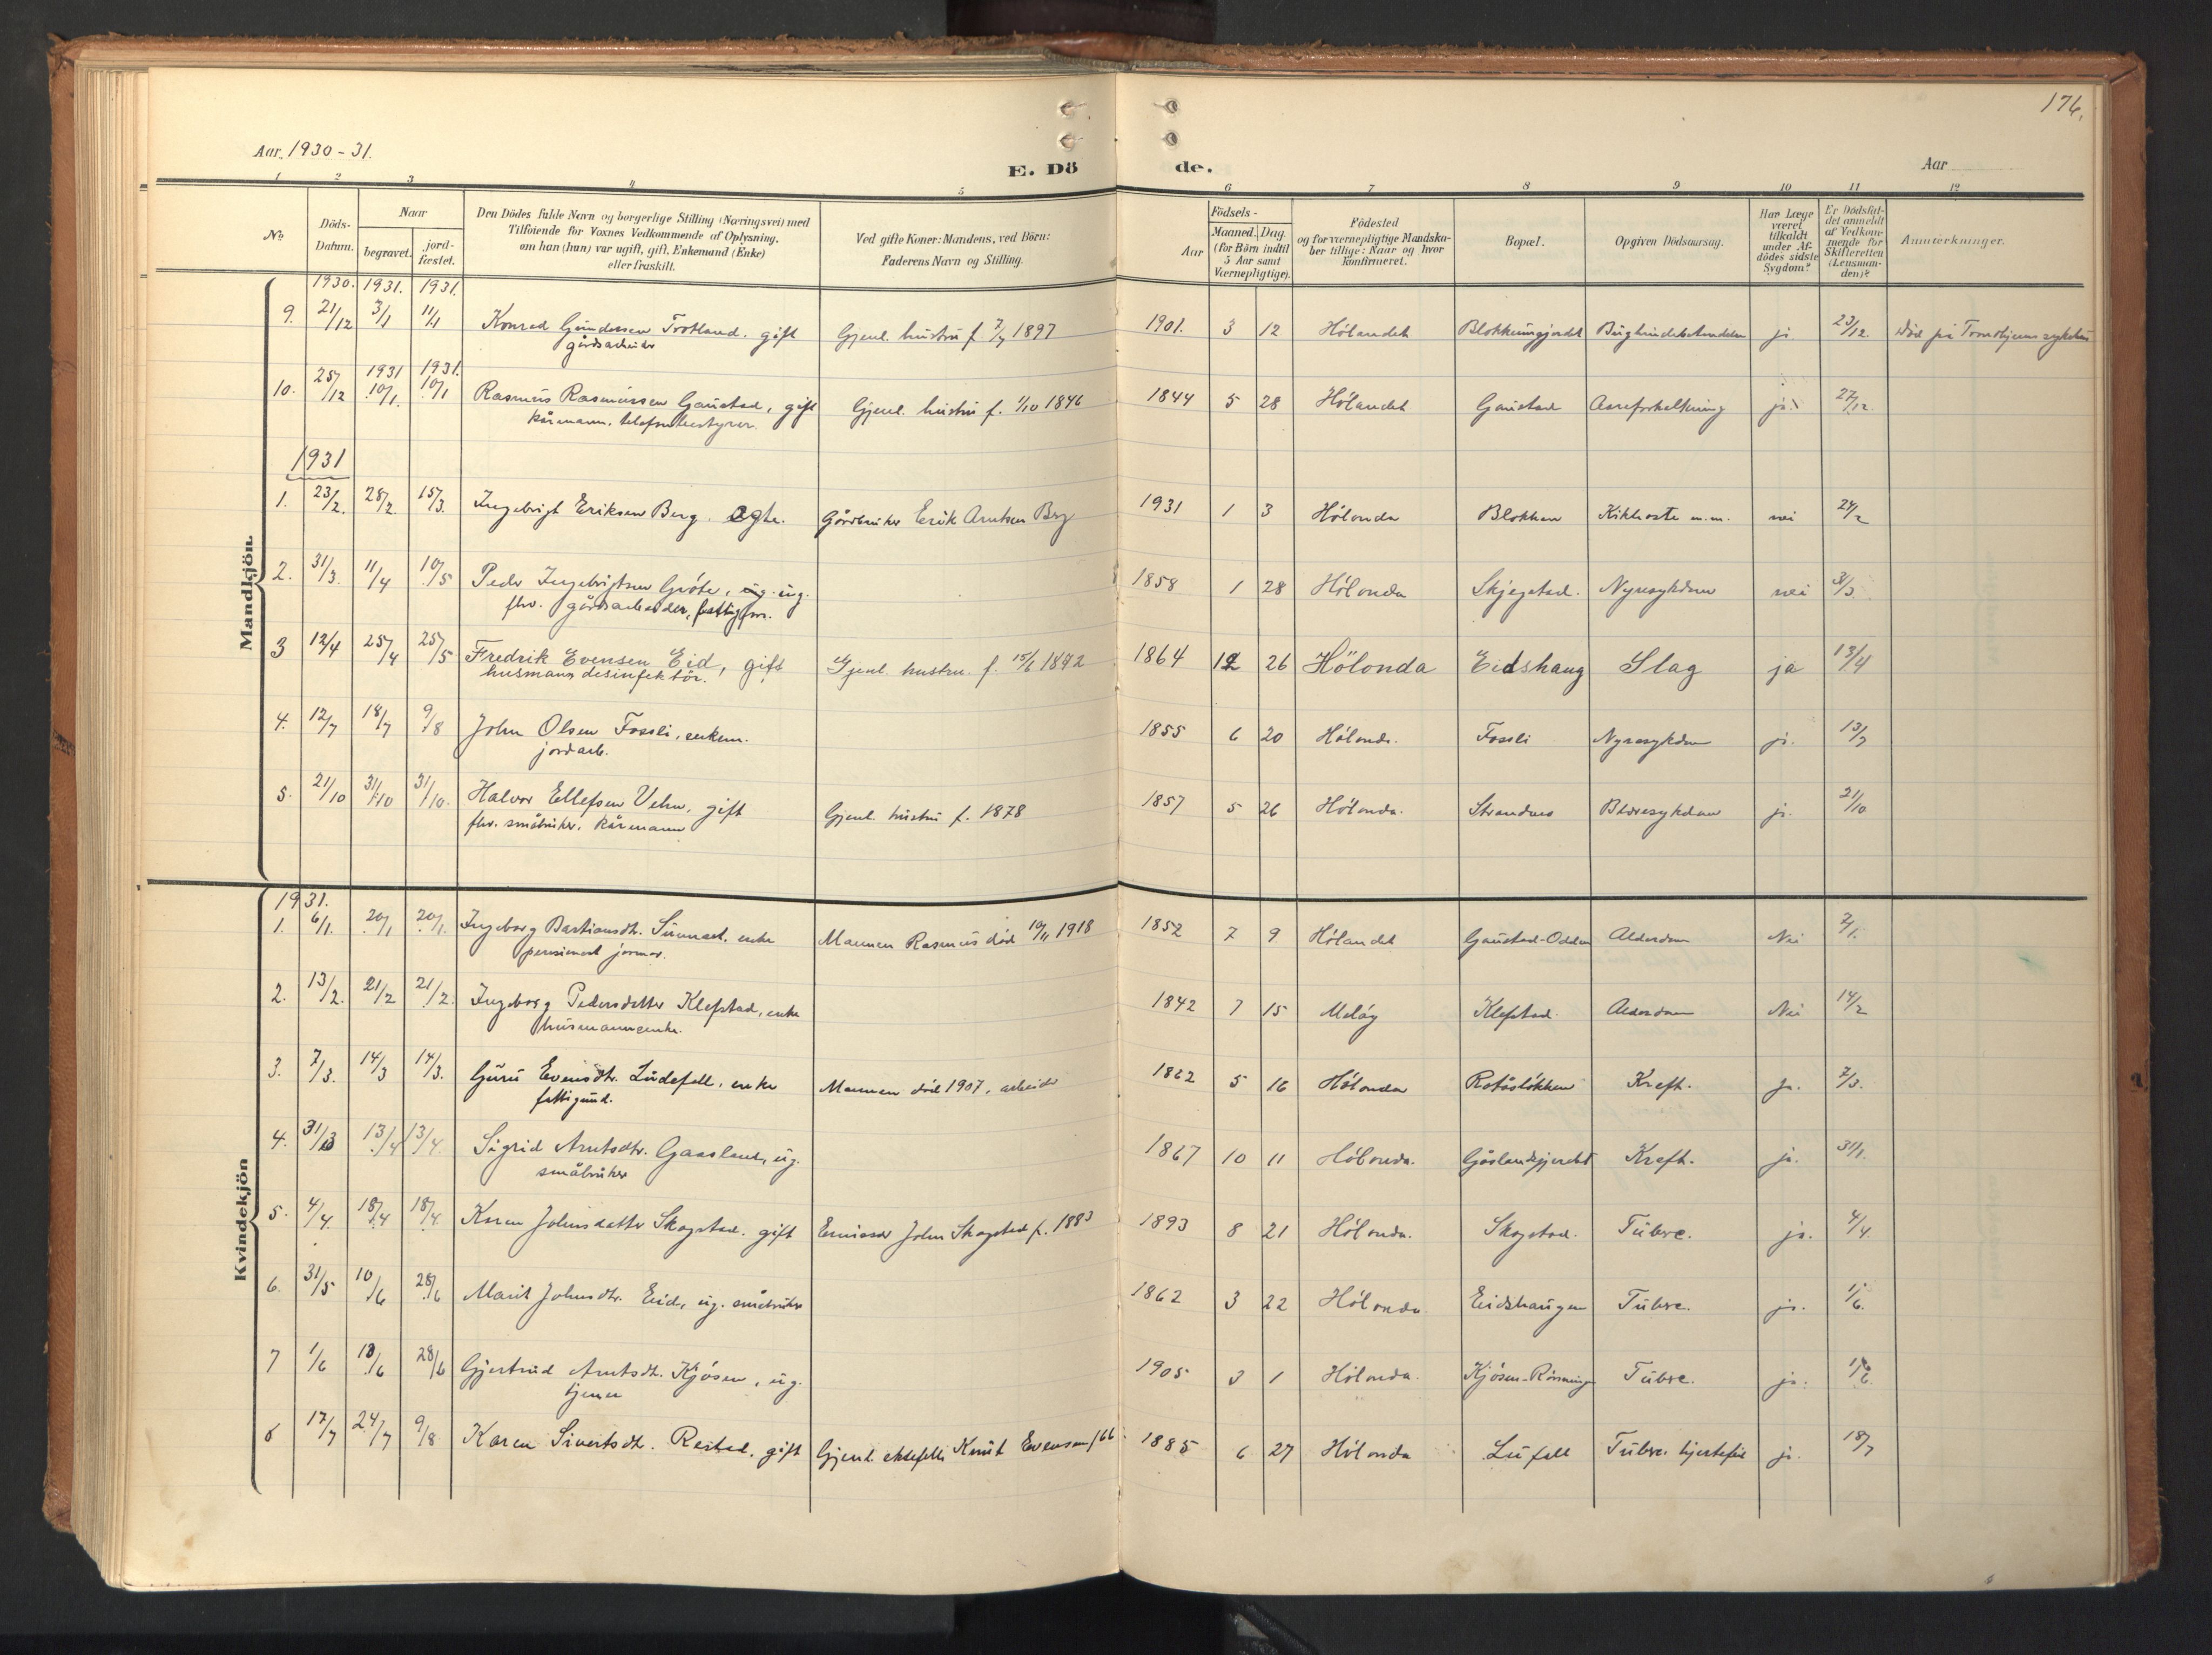 176.
Aar 1930-31.
E. Dö de.
Aar
1 2 3 4 5 6 7 8 9 10 11 12
No
Döds-Datum.
Naar
begravet.
jord-fæstet.
Den Dödes fulde Navn og borgerlige Stilling (Næringsvei) med
Tilföiende for Voxnes Vedkommende af Oplysning,
om han (hun) var ugift, gift, Enkemand (Enke)
eller fraskilt.
Ved gifte Koner: Mandens, ved Börn:
Faderens Navn og Stilling.
Aar
Födsels-
Maaned. Dag.
(for Börn indtil
5 Aar samt
Værnepligtige).
Födested
og for værnepligtige Mandska-
ber tillige: Naar og hvor
konfirmeret.
Bopæl.
Opgiven Dödsaarsag.
Har Læge
været
tilkaldt
under Af-
dödes sidste
Sygdom?
Er Dödsfal-
det anmeldt
af Vedkom-
mende for
Skifteretten
(Lensman-
den)?
Anmærkninger.
Mandkjön.
1930. 1931. 1931.
9. 21/12 3/1 11/1 Konrad Gundersen Trotland. gift Gjenl. hustru f. 7/7 1897 1901. 3 12 Hölandet ja 23/12. Död på Trondhjems sykehus
gårdsarbeider
1931 1931.
10. 25/12 10/1. 10/1 Rasmus Rasmussen Gaustad, gift Gjenl. hustru f. 1/10 1846 1844 5 28 Hölandet Gaustad Aareforkalkning ja. 27/12.
kårmann, telefonbestyrer.
1931
1. 23/2. 28/2 15/3. Ingebrigt Eriksen Berg. egte. Gårdbruker Erik Arntsen Berg 1931 1 3 Hölonda Blokken Kikhoste m.m. nei 24/2
2. 31/3. 11/4 10/5 Peder Ingebrigtsen Gröte, ug. ug. 1858 1 28 Hölonda Skjegstad. Nyresykdom nei 31/3.
fhv. gårdsarbeider, fattigfors.
3 12/4 25/4 25/5 Fredrik Evensen Eid, gift Gjenl. hustru. f. 15/6 1872 1864 12 26 Hölonda Eidshaug Slag ja 13/4
husmann desinfektör.
4. 12/7 18/7 9/8 John Olsen Fossli, enkem. 1855 6 20 Hölonda. Fossli Nyresykdom ja. 13/7
jordarb.
5. 21/10 31/10 31/10. Halvor Ellefsen Vehn, gift Gjenl. hustru f. 1878 1857 5 26 Hölonda. Strandmo Blæresykdom ja. 21/10
fhv. småbruker, kårmann
Kvindekjön
1931.
1. 6/1. 20/1 20/1. Ingeborg Bastiansdt. enke Mannen Rasmus död 10/11 1918 1852 7 9 Hölandet Gaustad-Odden Alderdom Nei 7/1.
pensionert jormor.
2. 13/2. 21/2 21/2. Ingeborg Pedersdatter Klefstad, enke 1842 7 15 Klefstad. Alderdom Nei 14/2
husmannsenke.
3. 7/3. 14/3 14/3. Guru Evensdtr. Ludefell, enke Mannen död 1907, arbeider 1862 5 16 Hölonda Kreft. ja. 7/3.
fattigund.
4. 31/3 13/4 13/4. Sigrid Arntsdtr. Gaasland, ug. 1867 10 11 Hölonda. Gåslandsgjerdet Kreft. ja. 31/1.
småbruker
5. 4/4. 18/4 18/4. Karen Johnsdatter Skogstad. gift Emissær John Skogstad f. 1883 1893 8 21 Hölonda. Skogstad. Tuberc. ja. 4/4
6. 31/5 10/6 28/6 Marit Johnsdtr. Eid, ug. småbruker 1862 3 22 Hölonda. Eidshaugen Tuberc. ja. 1/6.
7 1/6 10/6 28/6 Gjertrud Arntsdt. Kjösen, ug. 1905 3 1 Hölonda. Kjösen-Rönningen Tuberc. ja. 1/6.
tjener
8 17/7 24/7 9/8 Karen Sivertsdt. Restad. gift Gjenl. ektefelle Knut Evensen f 66 1885 6 27 Hölonda Lufall Tuberc. hjertefeil ja. 18/7